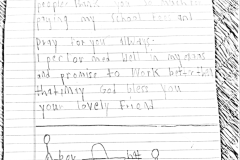 people thank you
paying my school fees and
pray for you always.
I performed well in my exams
and promise to work better than
that may God bless you
your lovely friend